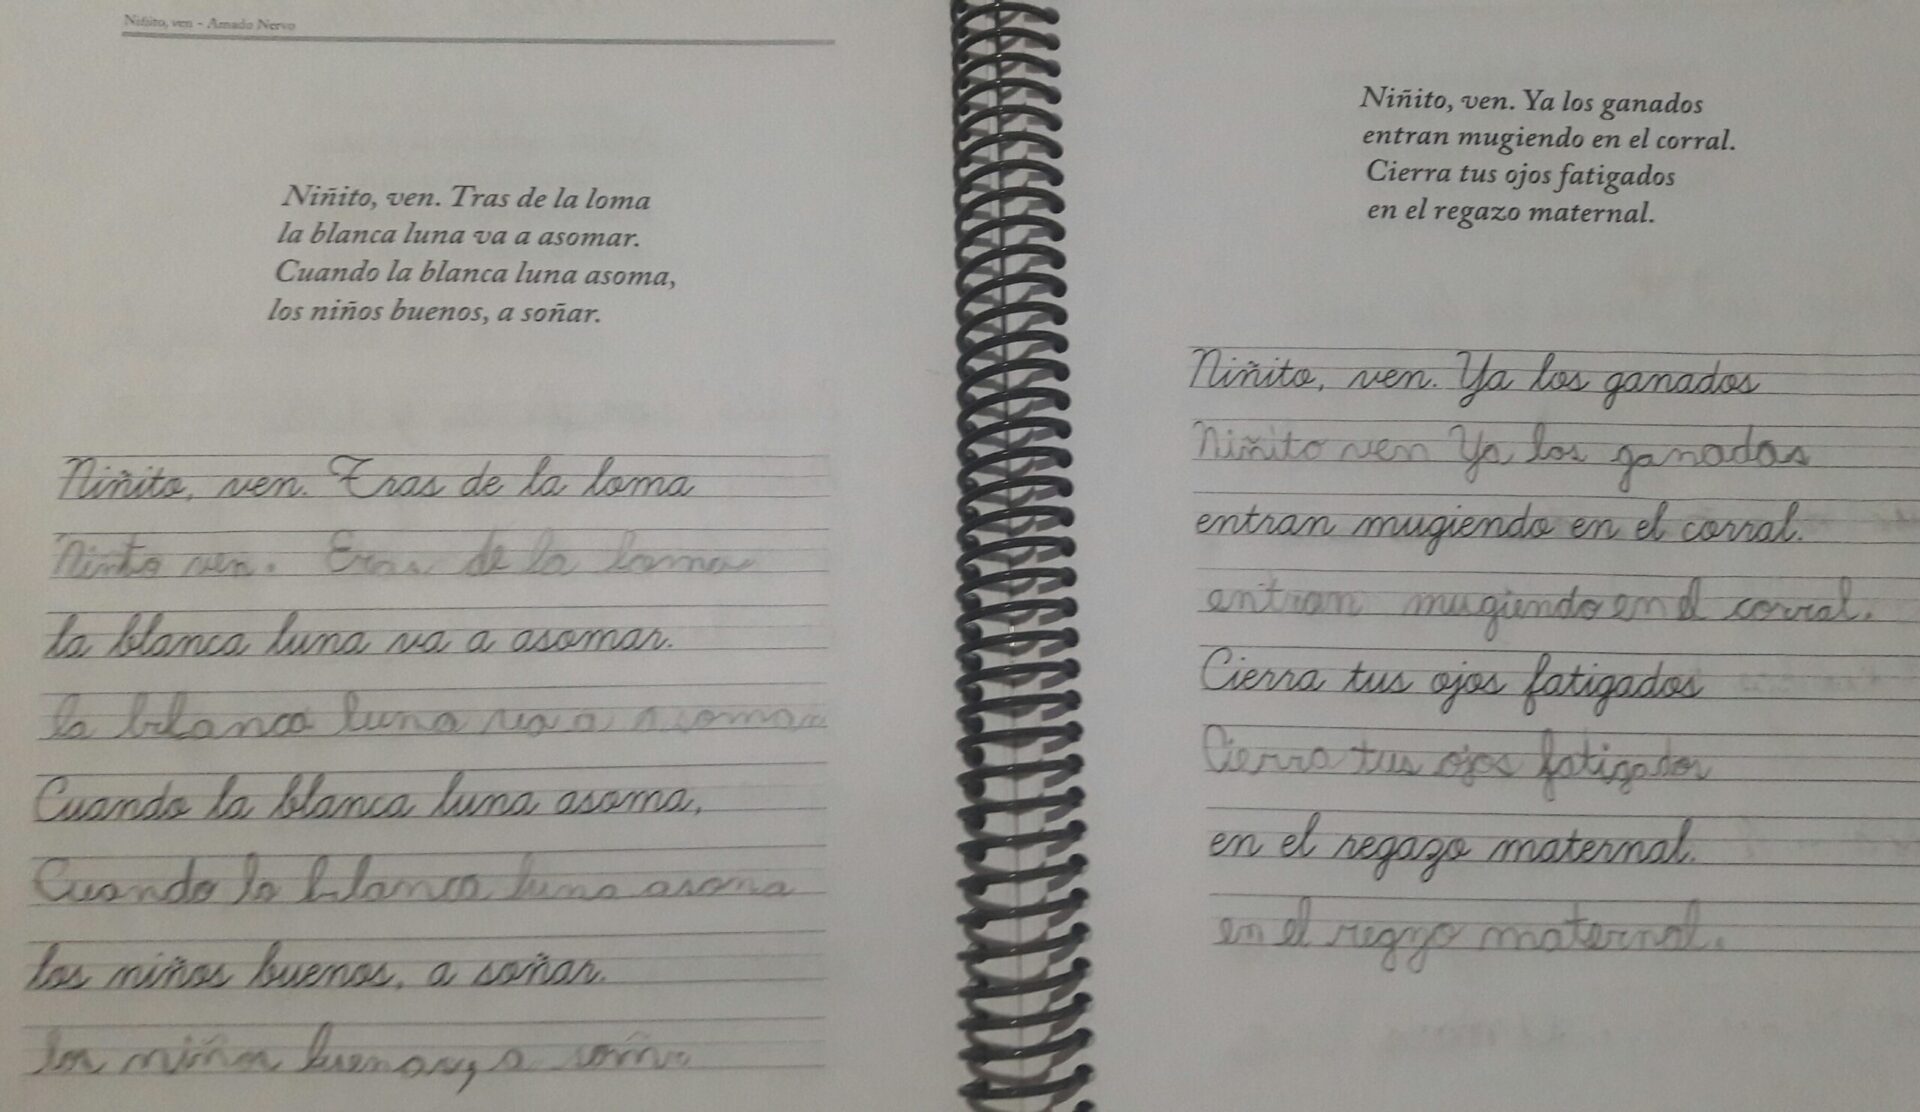 Niñito, ven - Amado Nervo
Niñito, ven. Tras de la loma
la blanca luna va a asomar.
Cuando la blanca luna asoma,
los niños buenos, a soñar.
Niñito, ven. Tras de la loma
Ninto ven. Eras de la loma
la blanca luna va a asomar.
la blanca luna va a asomar
Cuando la blanca luna asoma,
Cuando la blanca luna asoma
los niños buenos, a soñar.
los niños buenos, a
Niñito, ven. Ya los ganados
entran mugiendo en el corral.
Cierra tus ojos fatigados
en el regazo maternal.
Niñito, ven. Ya los ganados
Niñito ven Ya los ganados
entran mugiendo en el corral.
entran mugiendo en el corral.
Cierra tus ojos fatigados
Cierra tus ojos fatigador
en el regazo maternal.
en el regzo maternal.